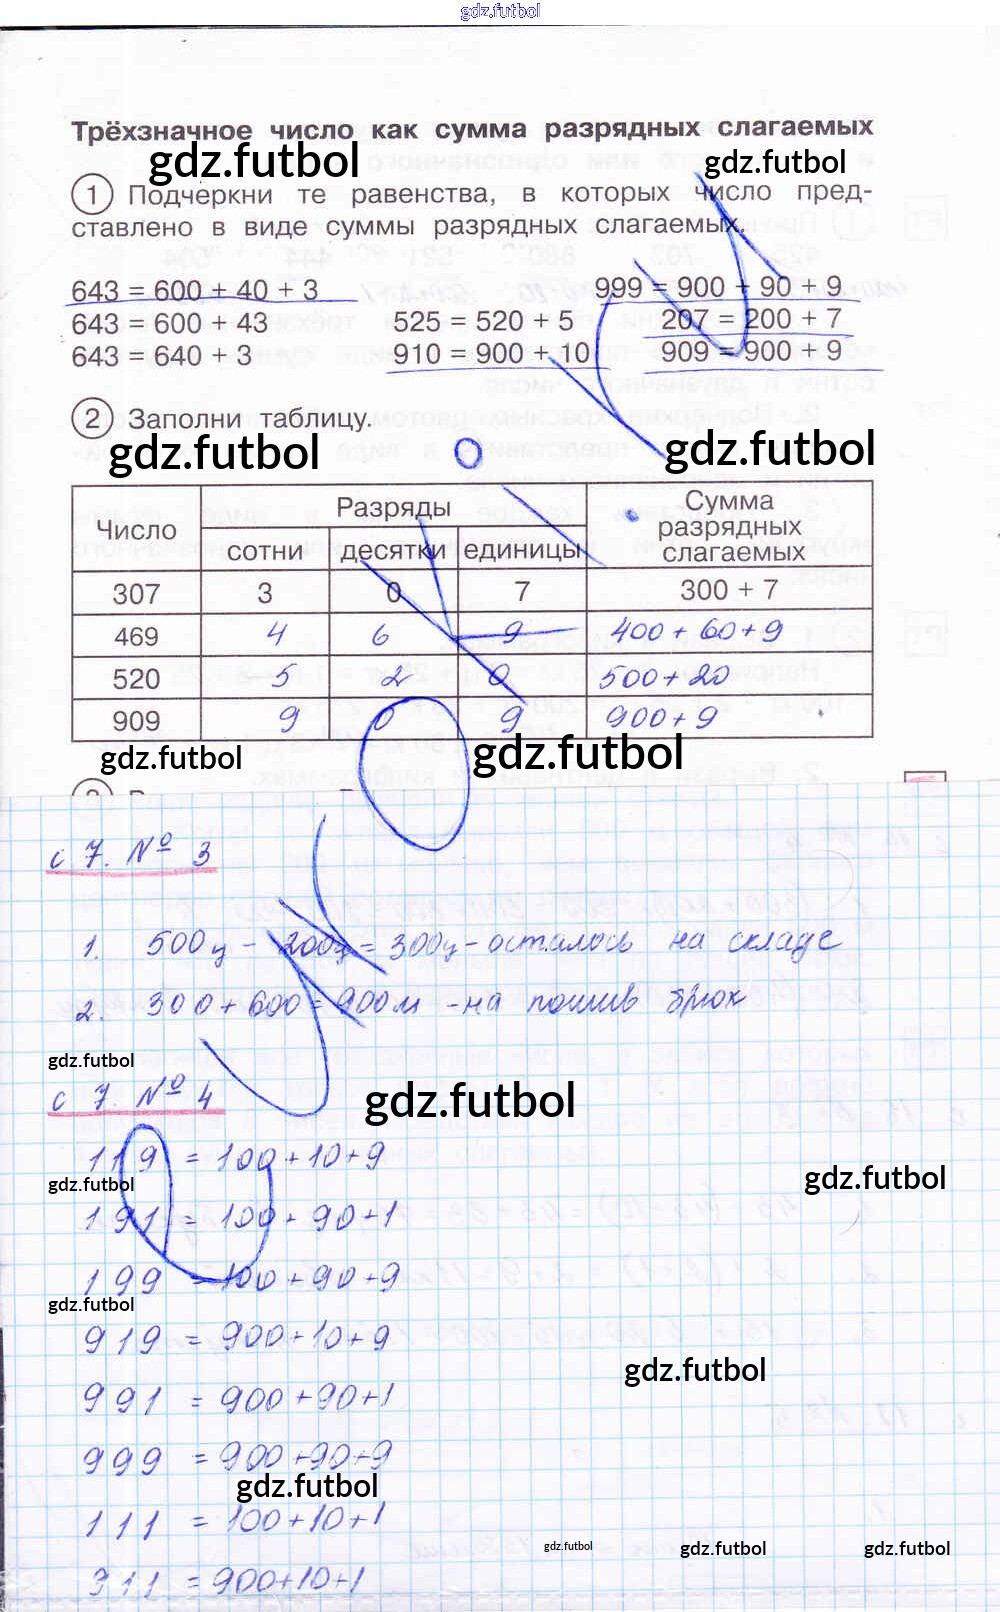 gdz.futbol
Трёхзначное число как сумма разрядных слагаемых
gdz.futbol gdz.futbol
1 Подчеркни те равенства, в которых число пред-
ставлено в виде суммы разрядных слагаемых.
643 = 600 + 40 + 3 999 = 900 + 90 + 9
643 = 600 + 43 525 = 520 + 5 207 = 200 + 7
643 = 640 + 3 910 = 900 + 10 909 = 900 + 9
2 Заполни таблицу.
gdz.futbol gdz.futbol
Число Разряды Сумма разрядных слагаемых
сотни десятки единицы
307 3 0 7 300 + 7
469 4 6 9 400 + 60 + 9
520 5 2 0 500 + 20
909 9 0 9 900 + 9
gdz.futbol gdz.futbol
с 7. № 3
1. 500ц - 200ц = 300ц - осталось на складе
2. 300 + 600 = 900м - на пошив брюк
gdz.futbol
с 7. № 4
gdz.futbol
119 = 100 + 10 + 9
gdz.futbol gdz.futbol
191 = 100 + 90 + 1
199 = 100 + 90 + 9
gdz.futbol
919 = 900 + 10 + 9
gdz.futbol
991 = 900 + 90 + 1
999 = 900 + 90 + 9
gdz.futbol
111 = 100 + 10 + 1
gdz.futbol gdz.futbol gdz.futbol
911 = 900 + 10 + 1